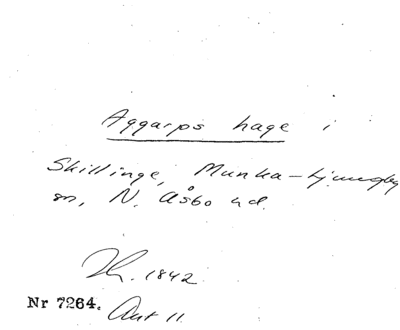 Aggarps hage i
Skillinge, Munka-Ljungby
sn, N. Åsbo hd.
Th. 1842.
Nr 7264.
Akt 11.